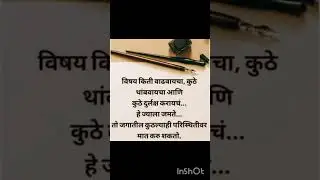 विषय किती वाढवायचा, कुठे
थांबवायचा आणि
कुठे दुर्लक्ष करायचं...
हे ज्याला जमते...
तो जगातील कुठल्याही परिस्थितीवर
मात करु शकतो.
InShOt